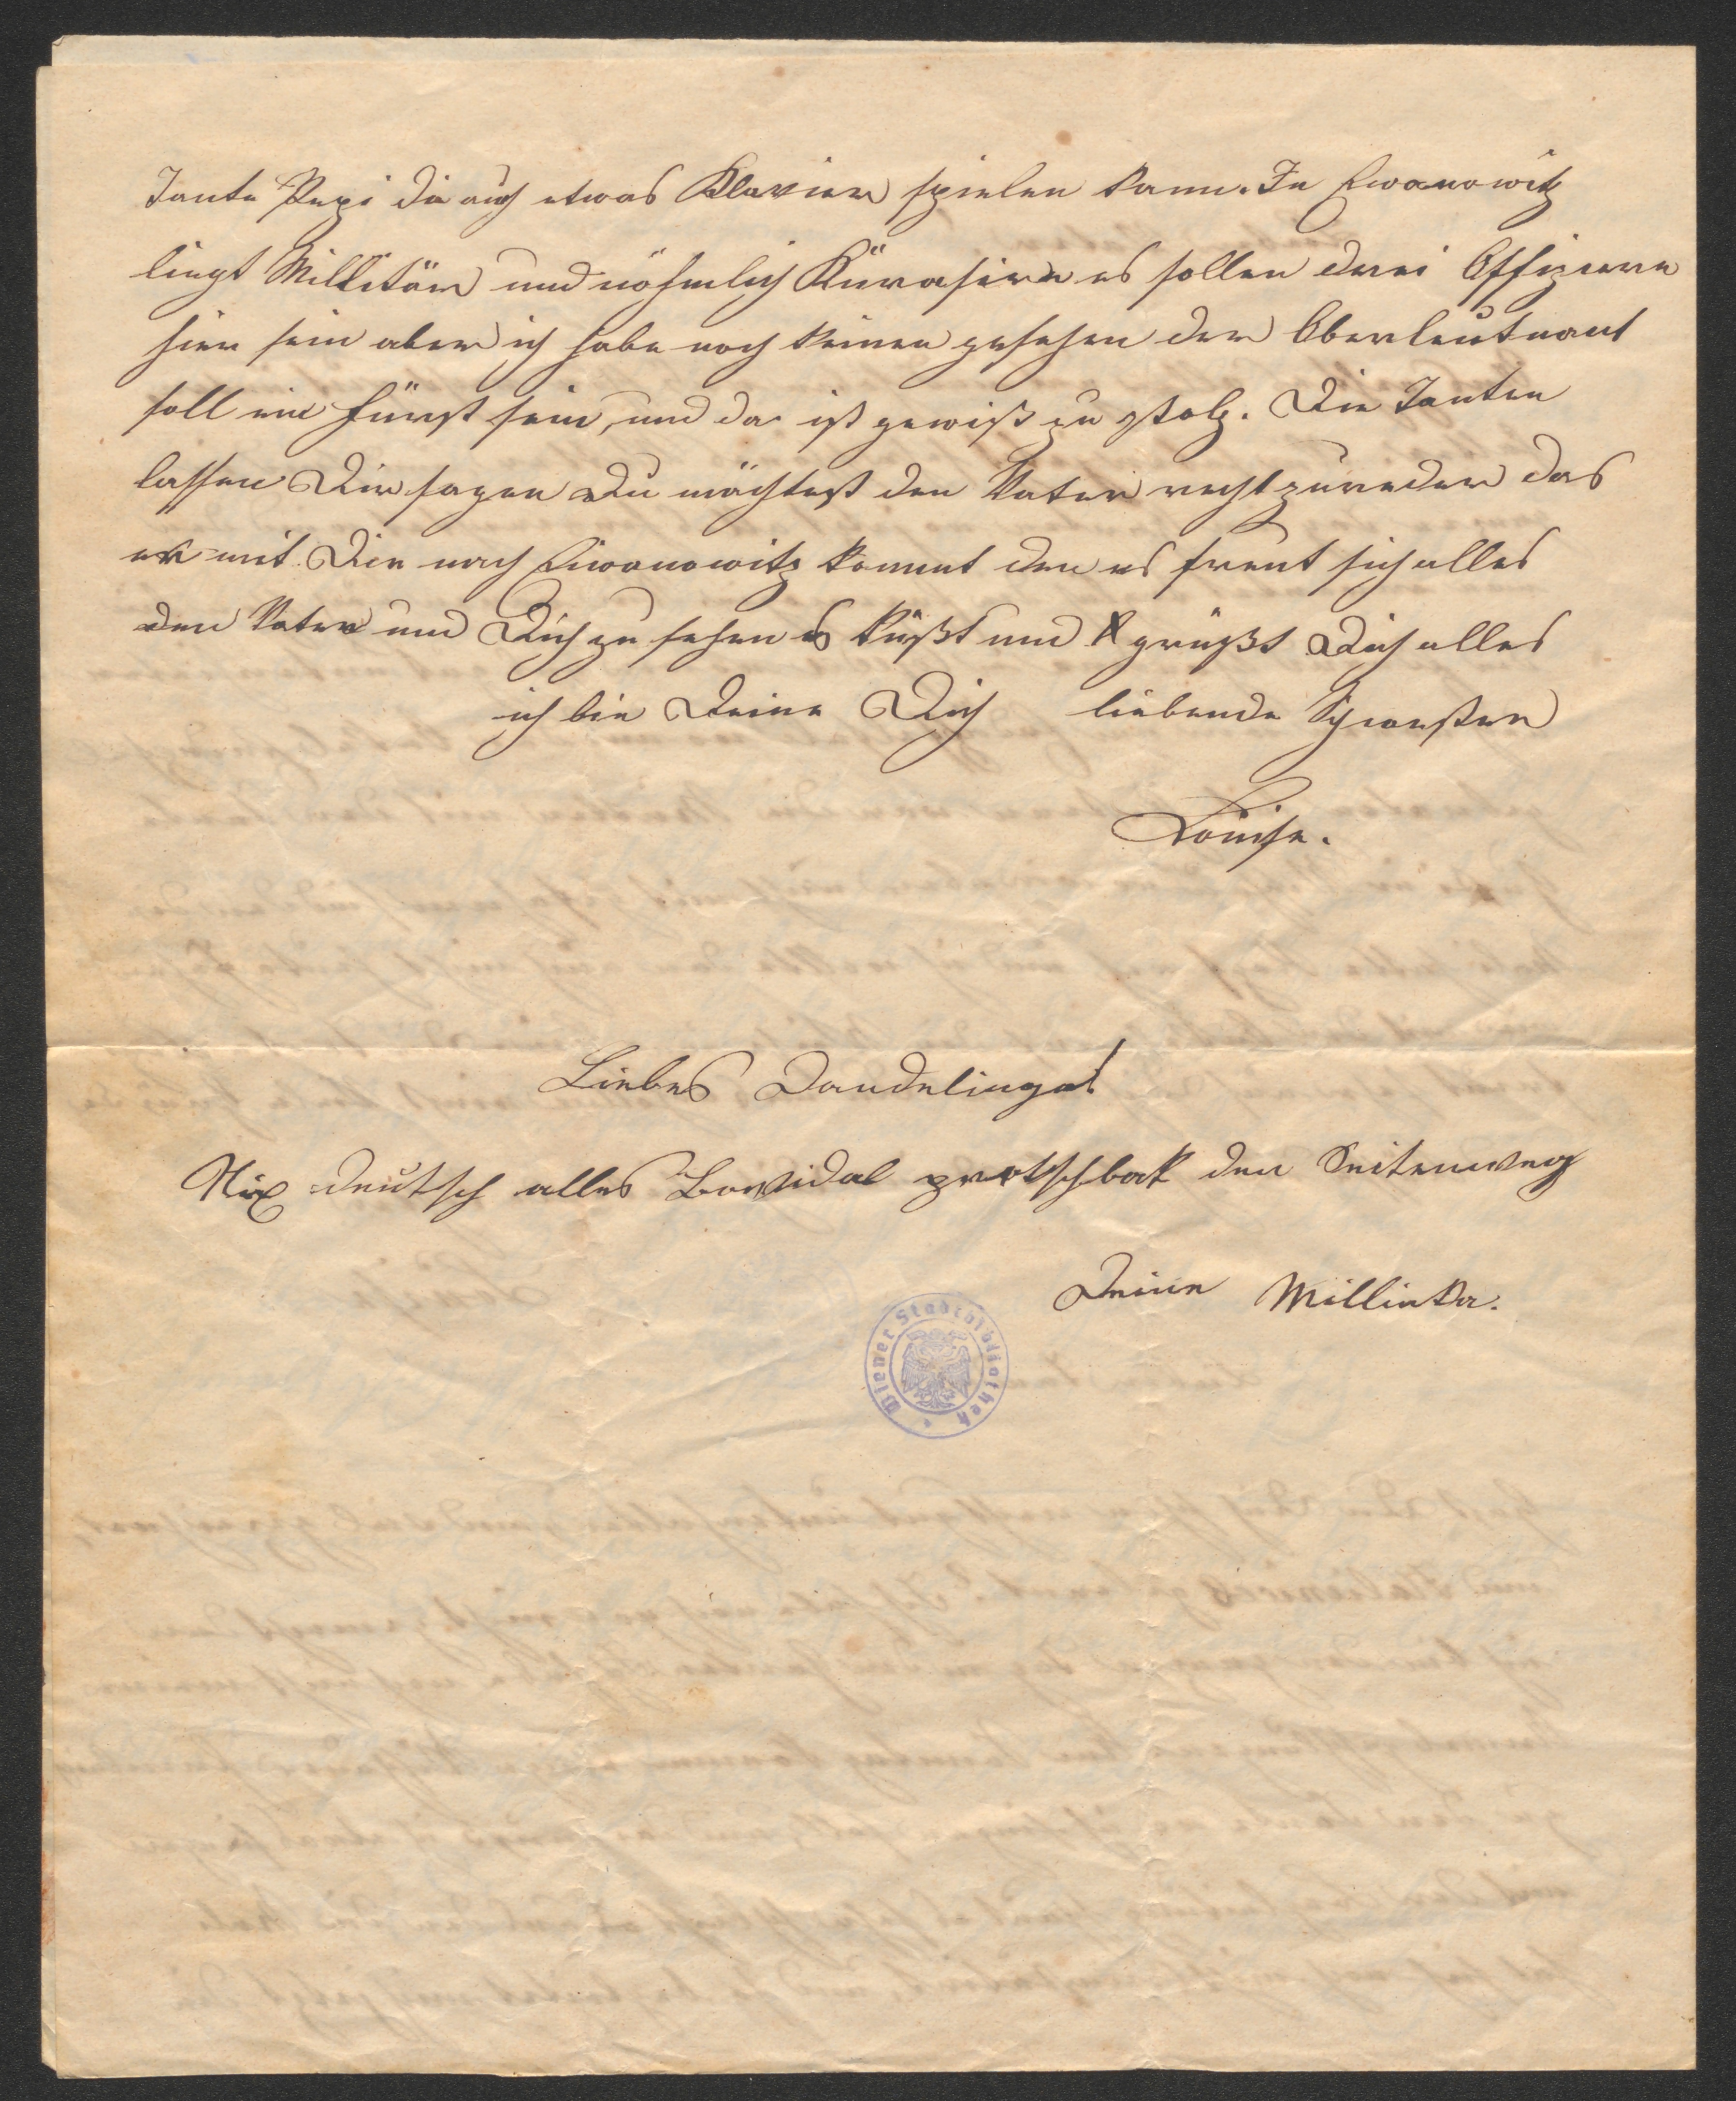 Tante Pepi die auch etwas Klavier spielen kann. In Eiwanowitz
liegt Millitär und nöhmlich Kürasire es sollen drei Offiziere
hier sein aber ich habe noch keinen gesehen der Oberleutnant
soll ein Fürst sein, und da ist gewiß zu stolz. Die Tanten
lassen Dir sagen Du möchtest den Vater recht zureden das
er mit Dir nach Eiwanowitz kommt den es freut sich alles
den Vater und Dich zu sehen es küßt und grüßt Dich alles
ich bin Deine Dich liebende Schwester
Louise.
Liebes
Nix deutsch alles den Seitenweg
Deine Millinka.
Wiener Stadtbibliothek